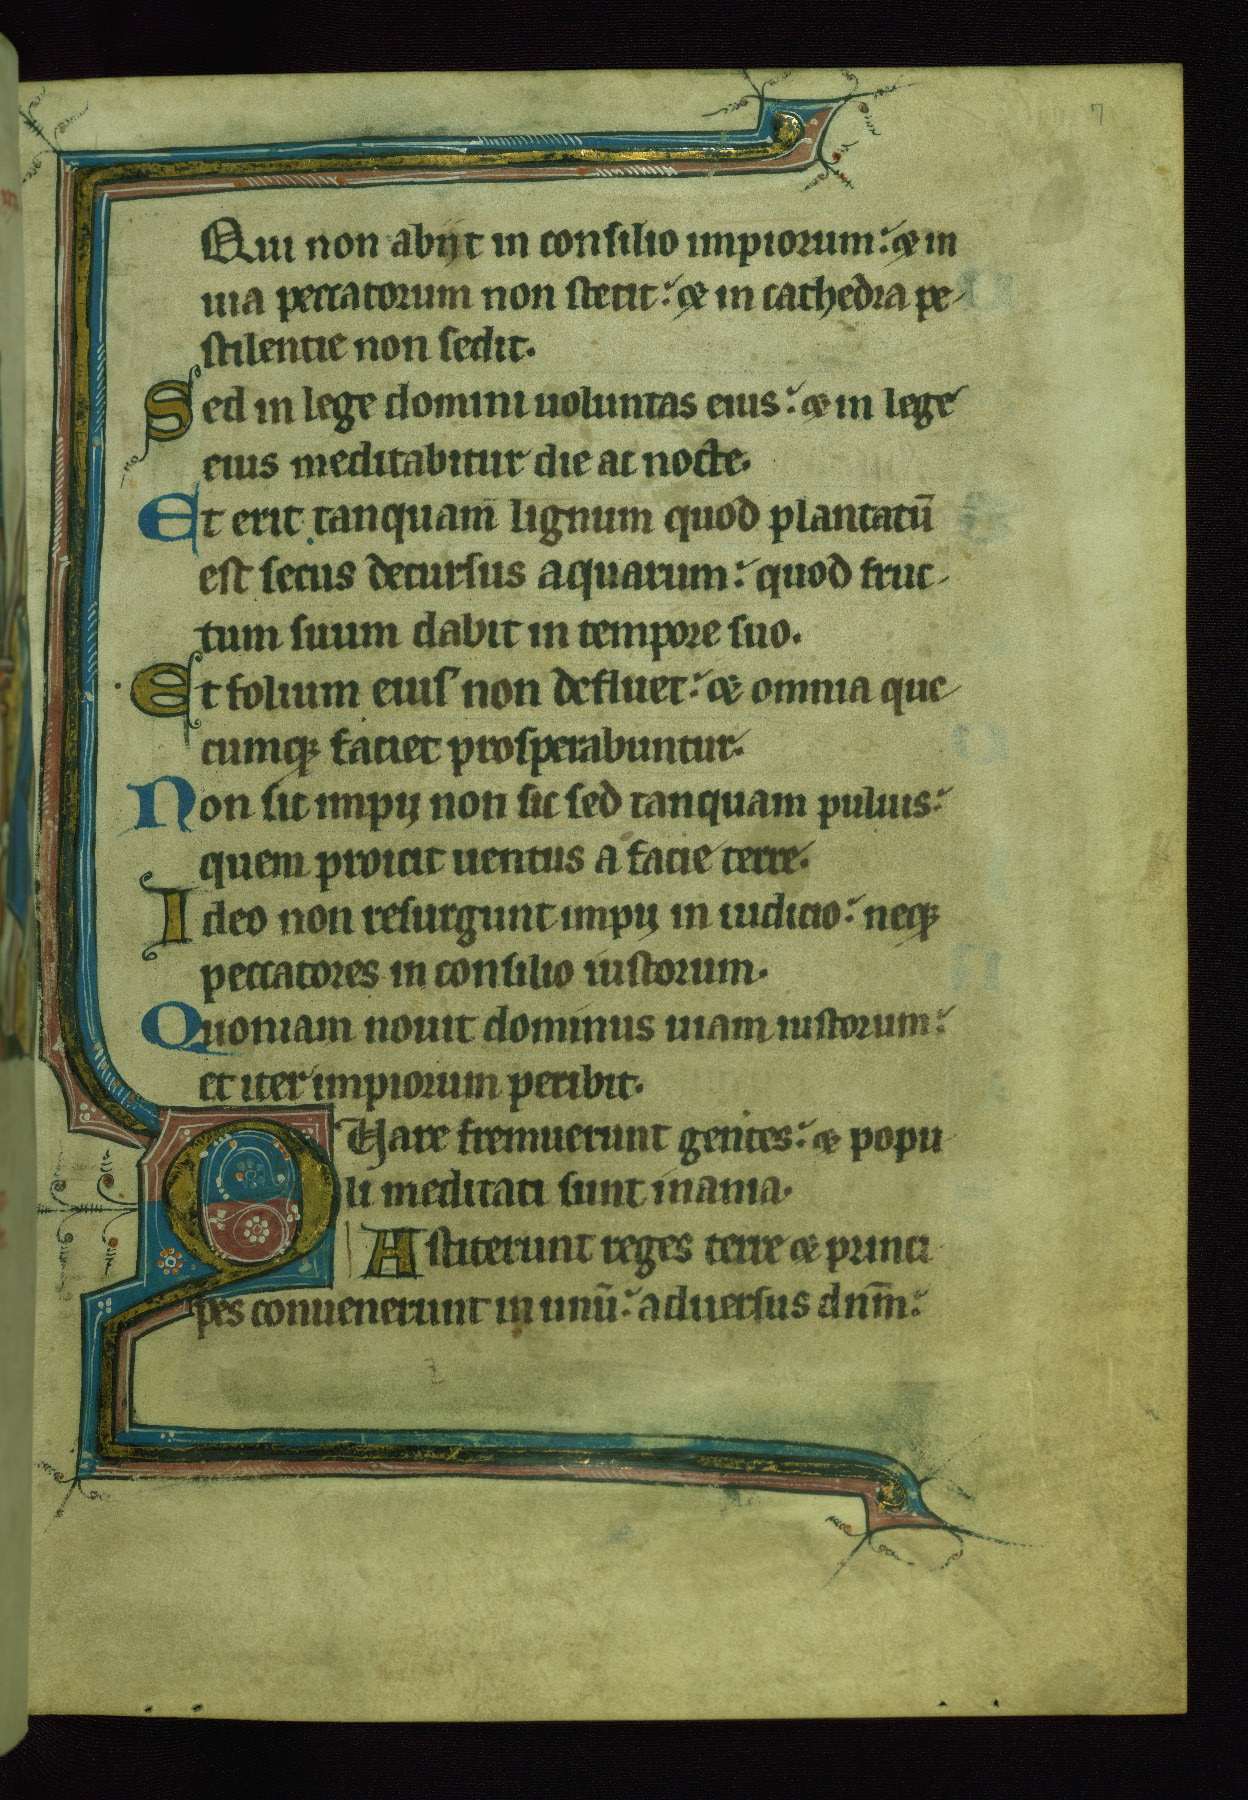 7
Qui non abijt in consilio impiorum: et in
uia peccatorum non stetit: et in cathedra pe-
stilentie non sedit.
Sed in lege domini uoluntas eius: et in lege
eius meditabitur die ac nocte.
Et erit tanquam̄ lignum quod plantatū
est secus decursus aquarum: quod fruc-
tum suum dabit in tempore suo.
Et folium eius non defluet: et omnia que
cumqꝫ faciet prosperabuntur.
Non sic impij non sic sed tanquam puluis:
quem proicit uentus a facie terre.
Ideo non resurgunt impij in iudicio: neqꝫ
peccatores in consilio iustorum.
Quoniam nouit dominus uiam iustorum:
et iter impiorum peribit.
Quare fremuerunt gentes: et popu
li meditati sunt inania.
Astiterunt reges terre et princi
pes conuenerunt in unū: aduersus dnm̄: